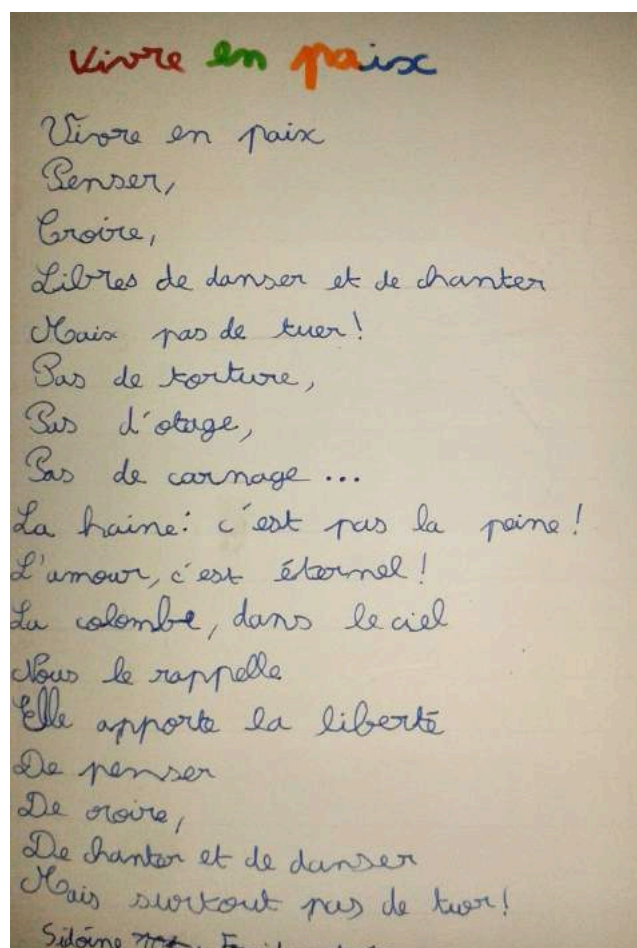 Vivre en paix
Vivre en paix
Penser,
Croire,
Libres de danser et de chanter
Mais pas de tuer!
Pas de torture,
Pas d'otage,
Pas de carnage ...
La haine: c'est pas la peine!
L'amour, c'est éternel!
La colombe, dans le ciel
Nous le rappelle
Elle apporte la liberté
De penser
De croire,
De chanter et de danser
Mais surtout pas de tuer!
Sidoine